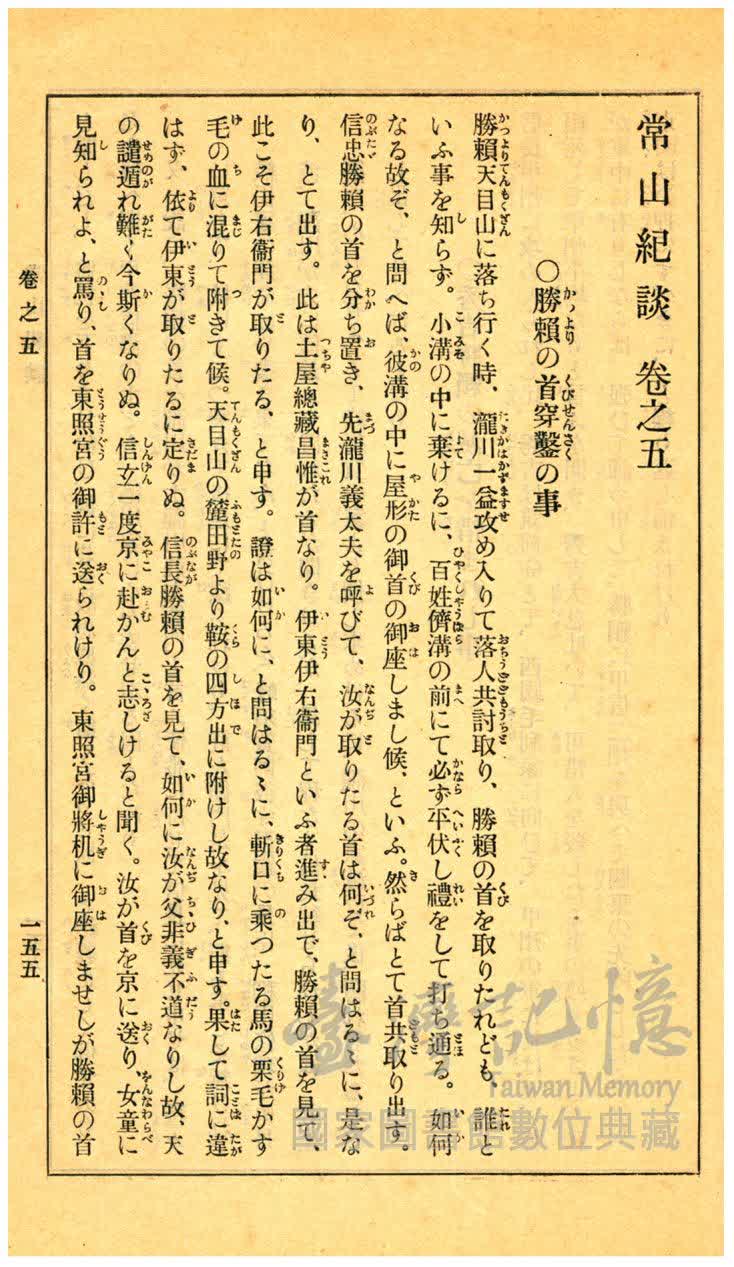 常山紀談 卷之五
○勝賴の首穿鑿の事
勝賴天目山に落ち行く時、瀧川一益攻め入りて落人共討取り、勝賴の首を取りたれども、誰と
いふ事を知らず。小溝の中に棄けるに、百姓儕溝の前にて必ず平伏し禮をして打ち通る。如何
なる故ぞ、と問へば、彼溝の中に屋形の御首の御座しまし候、といふ。然らばとて首共取り出す。
信忠勝賴の首を分ち置き、先瀧川義太夫を呼びて、汝が取りたる首は何ぞ、と問はるゝに、是な
り、とて出す。此は土屋總藏昌惟が首なり。伊東伊右衞門といふ者進み出で、勝賴の首を見て、
此こそ伊右衞門が取りたる、と申す。證は如何に、と問はるゝに、斬口に乘つたる馬の栗毛かす
毛の血に混りて附きて候。天目山の麓田野より鞍の四方出に附けし故なり、と申す。果して詞に違
はず、依て伊東が取りたるに定りぬ。信長勝賴の首を見て、如何に汝が父非義不道なりし故、天
の譴遁れ難く今斯くなりぬ。信玄一度京に赴かんと志しけると聞く。汝が首を京に送り、女童に
見知られよ、と罵り、首を東照宮の御許に送られけり。東照宮御將机に御座しませしが勝賴の首
卷之五
一五五
臺灣記憶
Taiwan Memory
國家圖書館數位典藏